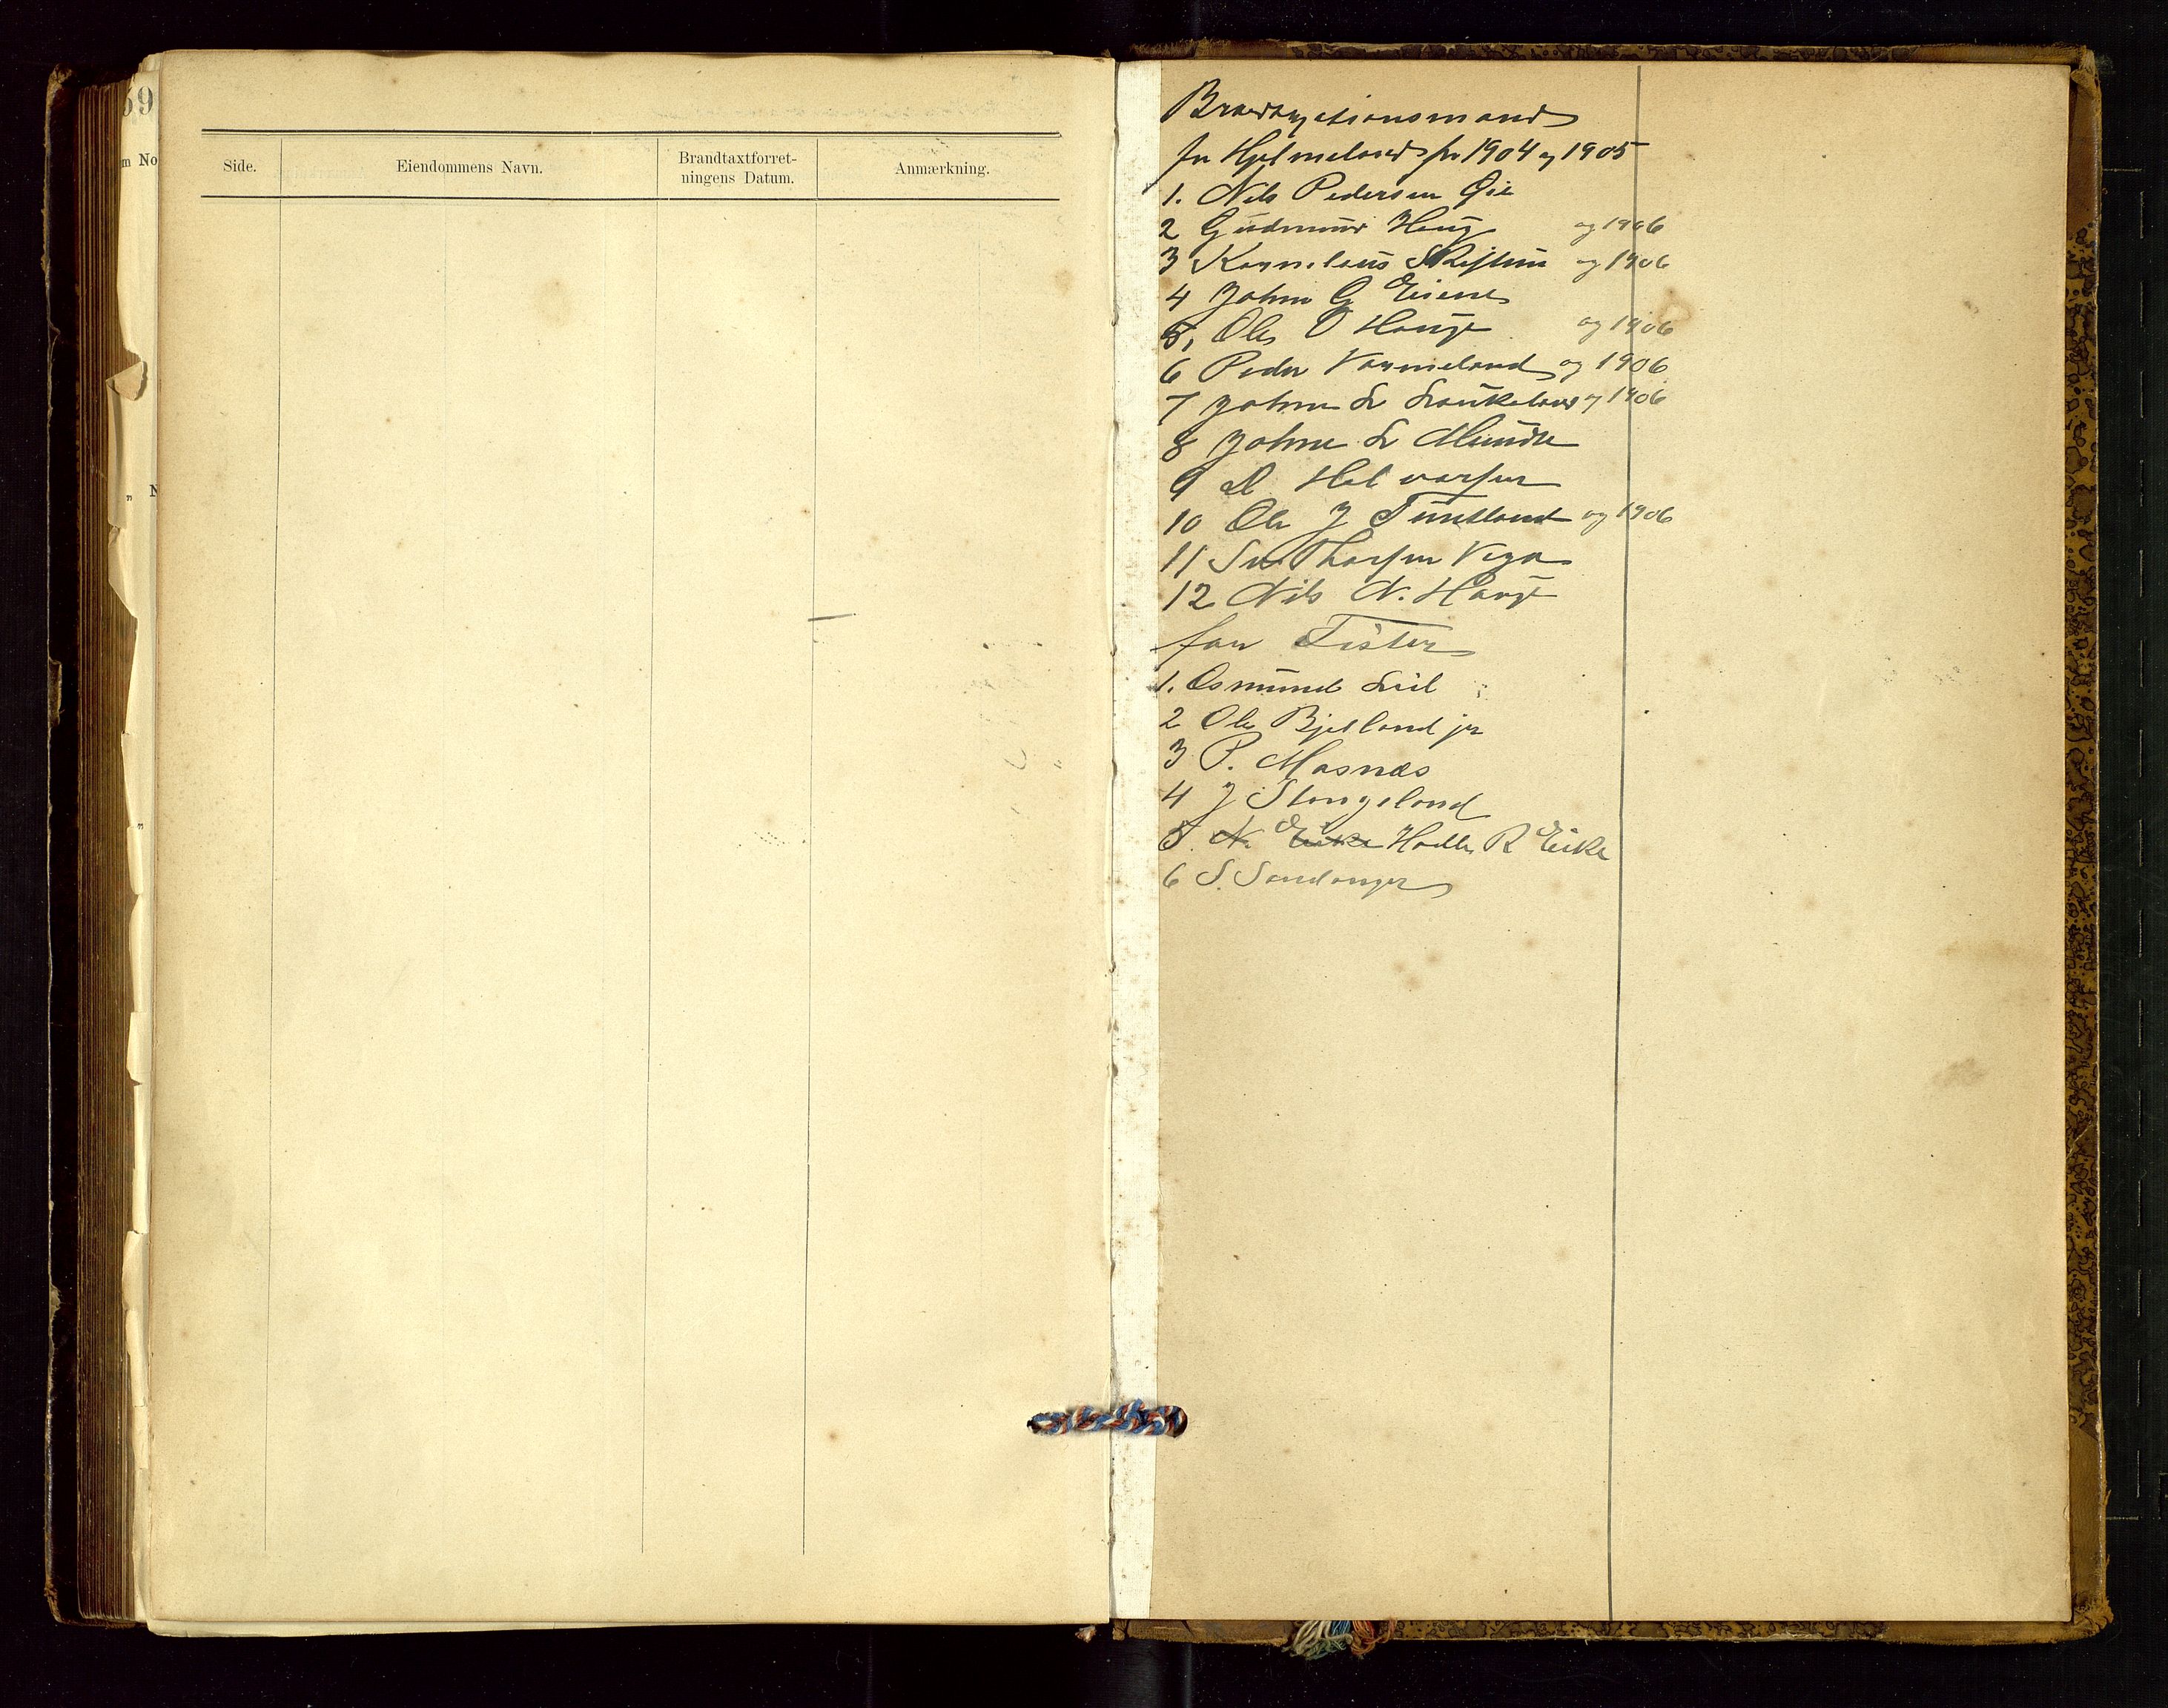 59
m No
Side.
Eiendommens Navn.
Brandtaxtforret-
ningens Datum.
Anmærkning.
for Hjelmeland for 1904 og 1905
1. Nils Pedersen Øie
2 Gudmund Haug og 1906
3 Kornelius og 1906
4 John G Eiene
5, Ole O Hauge og 1906
6 Peder Vormeland og 1906
7 John L Laukeland og 1906
8 John L Munde
9 D Halvorsen
10 Ole J Tuntland og 1906
11 Sv Thorsen Vega
12 Nils N. Hauge
for Fister
1. Osmund Leil
2 Ole Bjelland jr
3 P. Masnæs
4 J Stangeland
5. N. Eike Halle R Eike
6 S. Sandanger